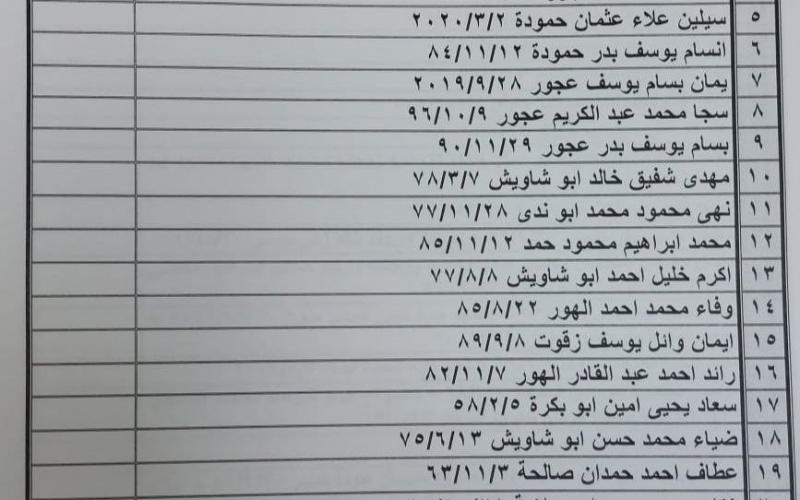 ٥ سيلين علاء عثمان حمودة ٢٠٢٠/٣/٢
٦ انسام يوسف بدر حمودة ٨٤/١١/١٢
٧ يمان بسام يوسف عجور ٢٠١٩/٩/٢٨
٨ سجا محمد عبد الكريم عجور ٩٦/١٠/٩
٩ بسام يوسف بدر عجور ٩٠/١١/٢٩
١٠ مهدى شفيق خالد ابو شاويش ٧٨/٣/٧
١١ نهى محمود محمد ابو ندى ٧٧/١١/٢٨
١٢ محمد ابراهيم محمود حمد ٨٥/١١/١٢
١٣ اكرم خليل احمد ابو شاويش ٧٧/٨/٨
١٤ وفاء محمد احمد الهور ٨٥/٨/٢٢
١٥ ايمان وائل يوسف زقوت ٨٩/٩/٨
١٦ رائد احمد عبد القادر الهور ٨٢/١١/٧
١٧ سعاد يحيى امين ابو بكرة ٥٨/٢/٥
١٨ ضياء محمد حسن ابو شاويش ٧٥/٦/١٣
١٩ عطاف احمد حمدان صالحة ٦٣/١١/٣